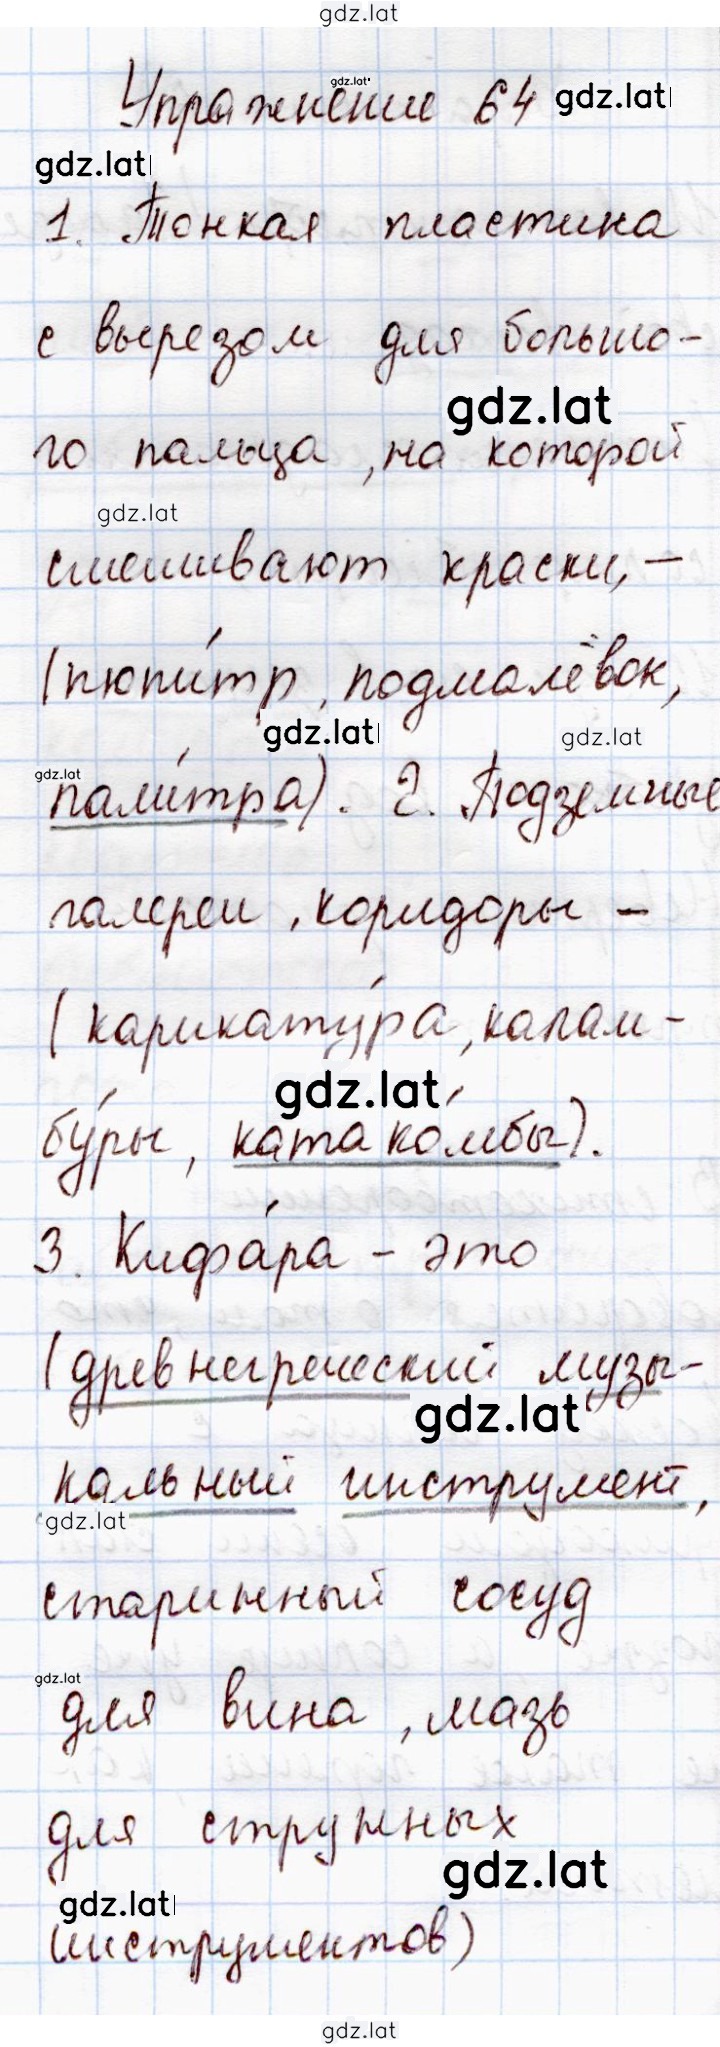 gdz.lat
Упражнение 64
gdz.lat
gdz.lat
gdz.lat
1. Тонкая пластина
с вырезом для большо-
gdz.lat
го пальца, на которой
gdz.lat
смешивают краски, –
(пюпи́тр, подмалёвок,
gdz.lat
gdz.lat
gdz.lat
пали́тра). 2. Подземные
галереи, коридоры –
(карикату́ра, калам-
gdz.lat
бу́ры, катако́мбы).
3. Кифа́ра – это
(древнегреческий музы-
gdz.lat
кальный инструмент,
gdz.lat
старинный сосуд
gdz.lat
для вина, мазь
для струнных
gdz.lat
gdz.lat
инструментов)
gdz.lat